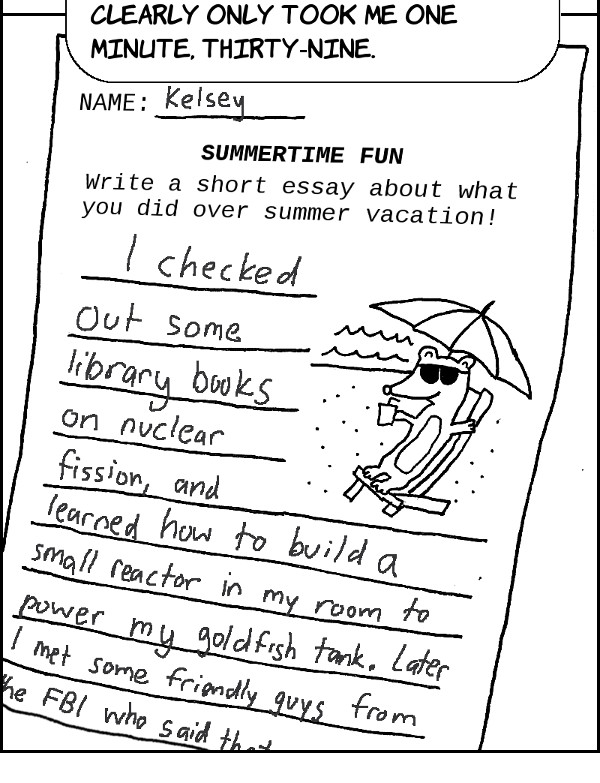 CLEARLY ONLY TOOK ME ONE
MINUTE, THIRTY-NINE.
NAME: Kelsey
SUMMERTIME FUN
Write a short essay about what
you did over summer vacation!
I checked
out some
library books
on nuclear
fission, and
learned how to build a
small reactor in my room to
power my goldfish tank. Later
I met some friendly guys from
the FBI who said that